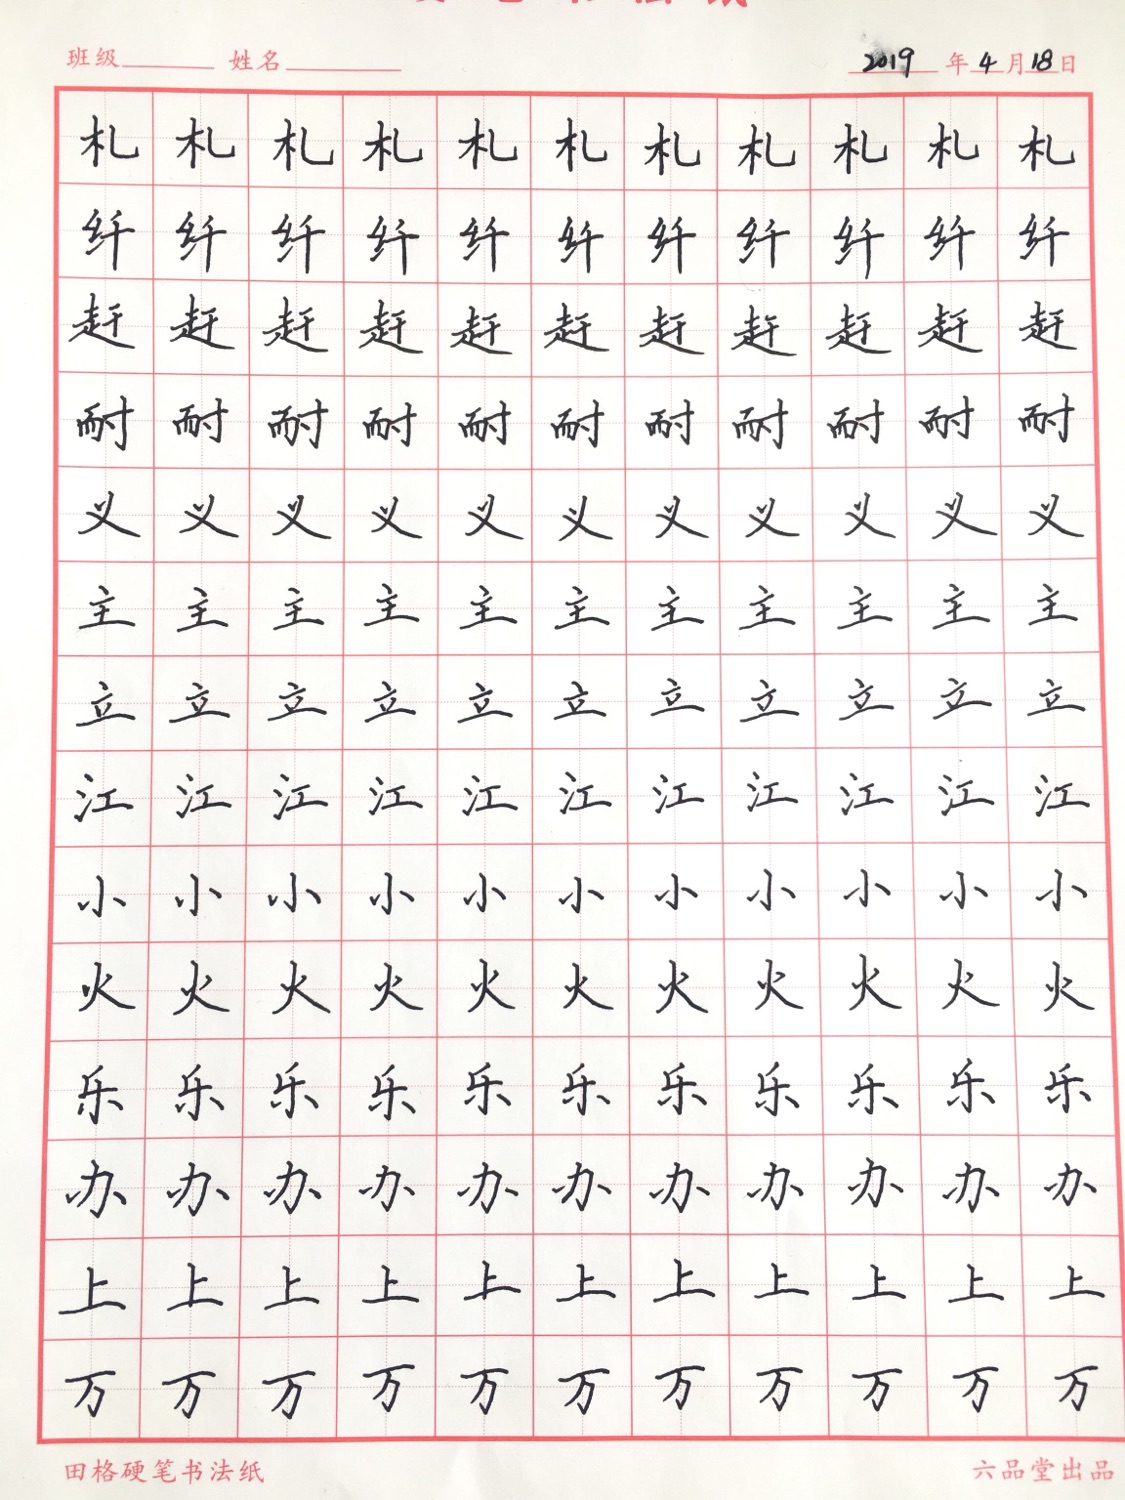 班级 姓名 2019年4月18日
札札札札札札札札札札札
纤纤纤纤纤纤纤纤纤纤纤
赶赶赶赶赶赶赶赶赶赶赶
耐耐耐耐耐耐耐耐耐耐耐
义义义义义义义义义义义
主主主主主主主主主主主
立立立立立立立立立立立
江江江江江江江江江江江
小小小小小小小小小小小
火火火火火火火火火火火
乐乐乐乐乐乐乐乐乐乐乐
办办办办办办办办办办办
上上上上上上上上上上上
万万万万万万万万万万万
田格硬笔书法纸 六品堂出品